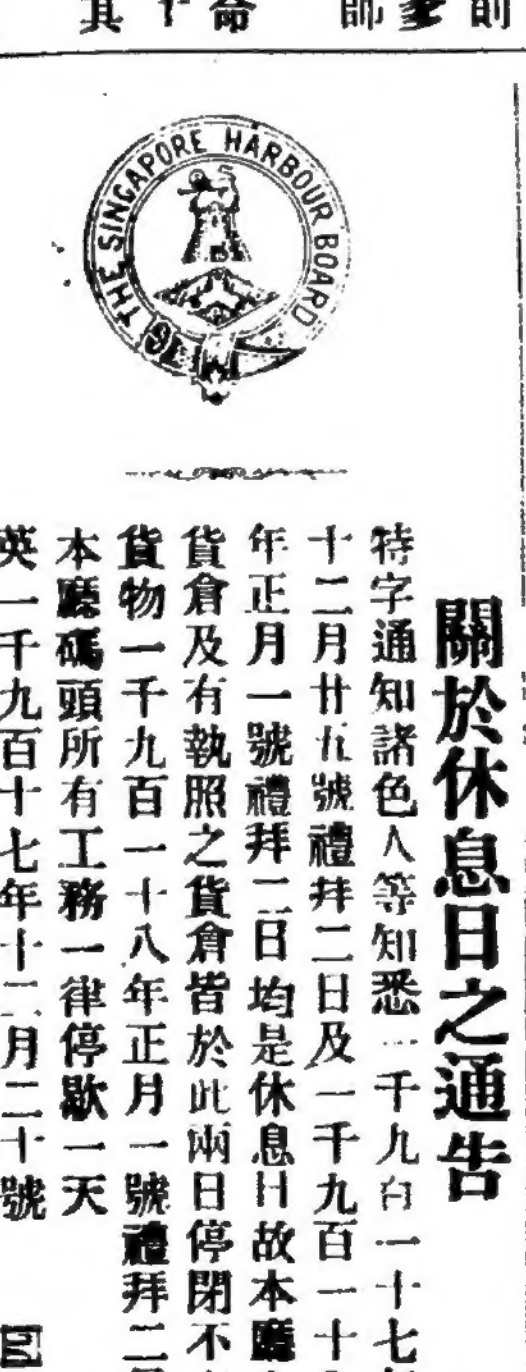 THE SINGAPORE HARBOUR BOARD
關於休息日之通告
特字通知諸色人等知悉一千九百一十七
十二月廿五號禮拜二日及一千九百一十
年正月一號禮拜二日均是休息日故本廳
貨倉及有執照之貨倉皆於此兩日停閉不
貨物一千九百一十八年正月一號禮拜二
本廳碼頭所有工務一律停歇一天
英一千九百十七年十二月二十號